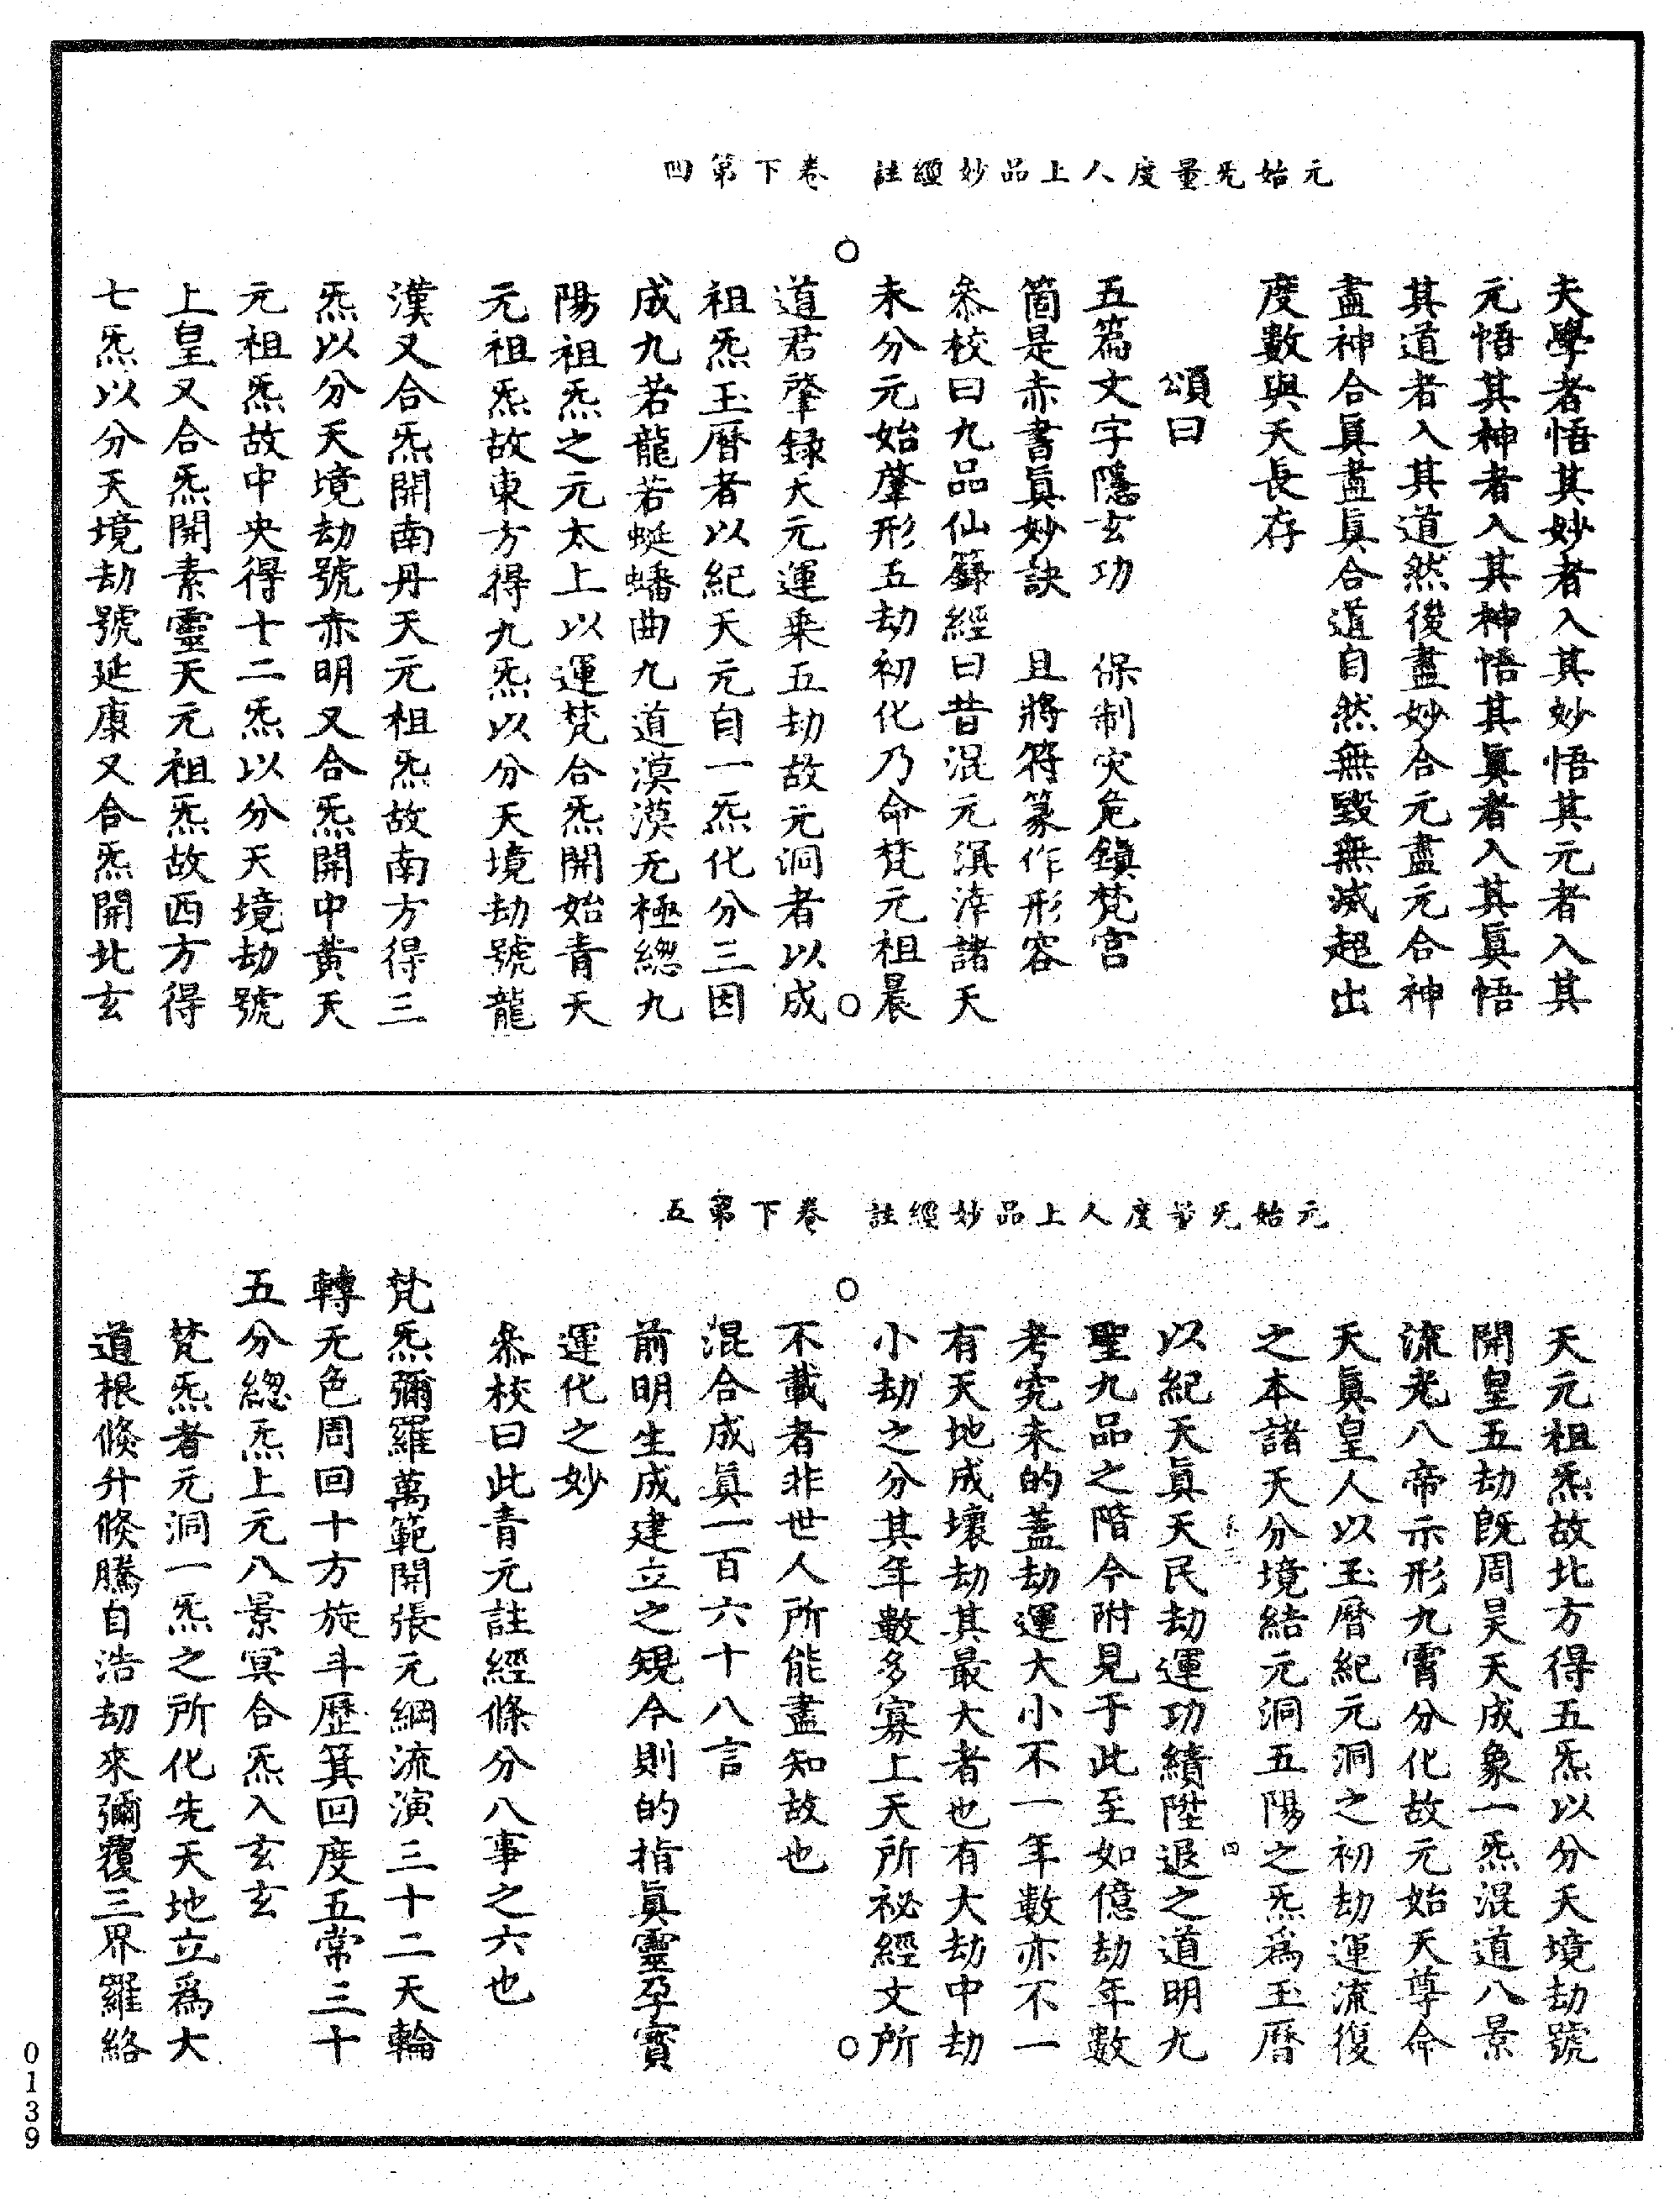 元始无量度人上品妙經註　卷下第四
夫學者悟其妙者入其妙悟其元者入其
元悟其神者入其神悟其眞者入其眞悟
其道者入其道然後盡妙合元盡元合神
盡神合眞盡眞合道自然無毀無滅超出
度數與天長存
頌曰
五篇文字隱玄功　保制灾危鎭梵宫
箇是赤書眞妙訣　且將符篆作形容
叅校曰九品仙籙經曰昔混元溟涬諸天
未分元始肇形五劫初化乃命梵元祖晨
道君肇録大元運乗五劫故元洞者以成
祖炁玉曆者以紀天元自一炁化分三因
成九若龍若蜒蟠曲九道漠漠无極緫九
陽祖炁之元太上以運梵合炁開始青天
元祖炁故東方得九炁以分天境劫號龍
漢又合炁開南丹天元祖炁故南方得三
炁以分天境劫號赤明又合炁開中黄天
元祖炁故中央得十二炁以分天境劫號
上皇又合炁開素靈天元祖炁故西方得
七炁以分天境劫號延康又合炁開北玄
元始无量度人上品妙經註　卷下第五
天元祖炁故北方得五炁以分天境劫號
開皇五劫旣周昊天成象一炁混道八景
流光八帝示形九霄分化故元始天尊命
天眞皇人以玉曆紀元洞之初劫運流復
之本諸天分境結元洞五陽之炁爲玉曆
以紀天眞天民劫運功績陞退之道明九
聖九品之階今附見于此至如億劫年數
考究未的蓋劫運大小不一年數亦不一
有天地成壞劫其最大者也有大劫中劫
小劫之分其年數多寡上天所祕經文所
不載者非世人所能盡知故也
混合成眞一百六十八言
前明生成建立之䂓今則的指眞靈孕寳
運化之妙
叅校曰此青元註經條分八事之六也
梵炁彌羅萬範開張元綱流演三十二天輪
轉无色周回十方旋斗歷箕回度五常三十
五分緫炁上元八景冥合炁入玄玄
梵炁者元洞一炁之所化先天地立爲大
道根倐升倐騰自浩劫來彌覆三界羅絡
四
0139